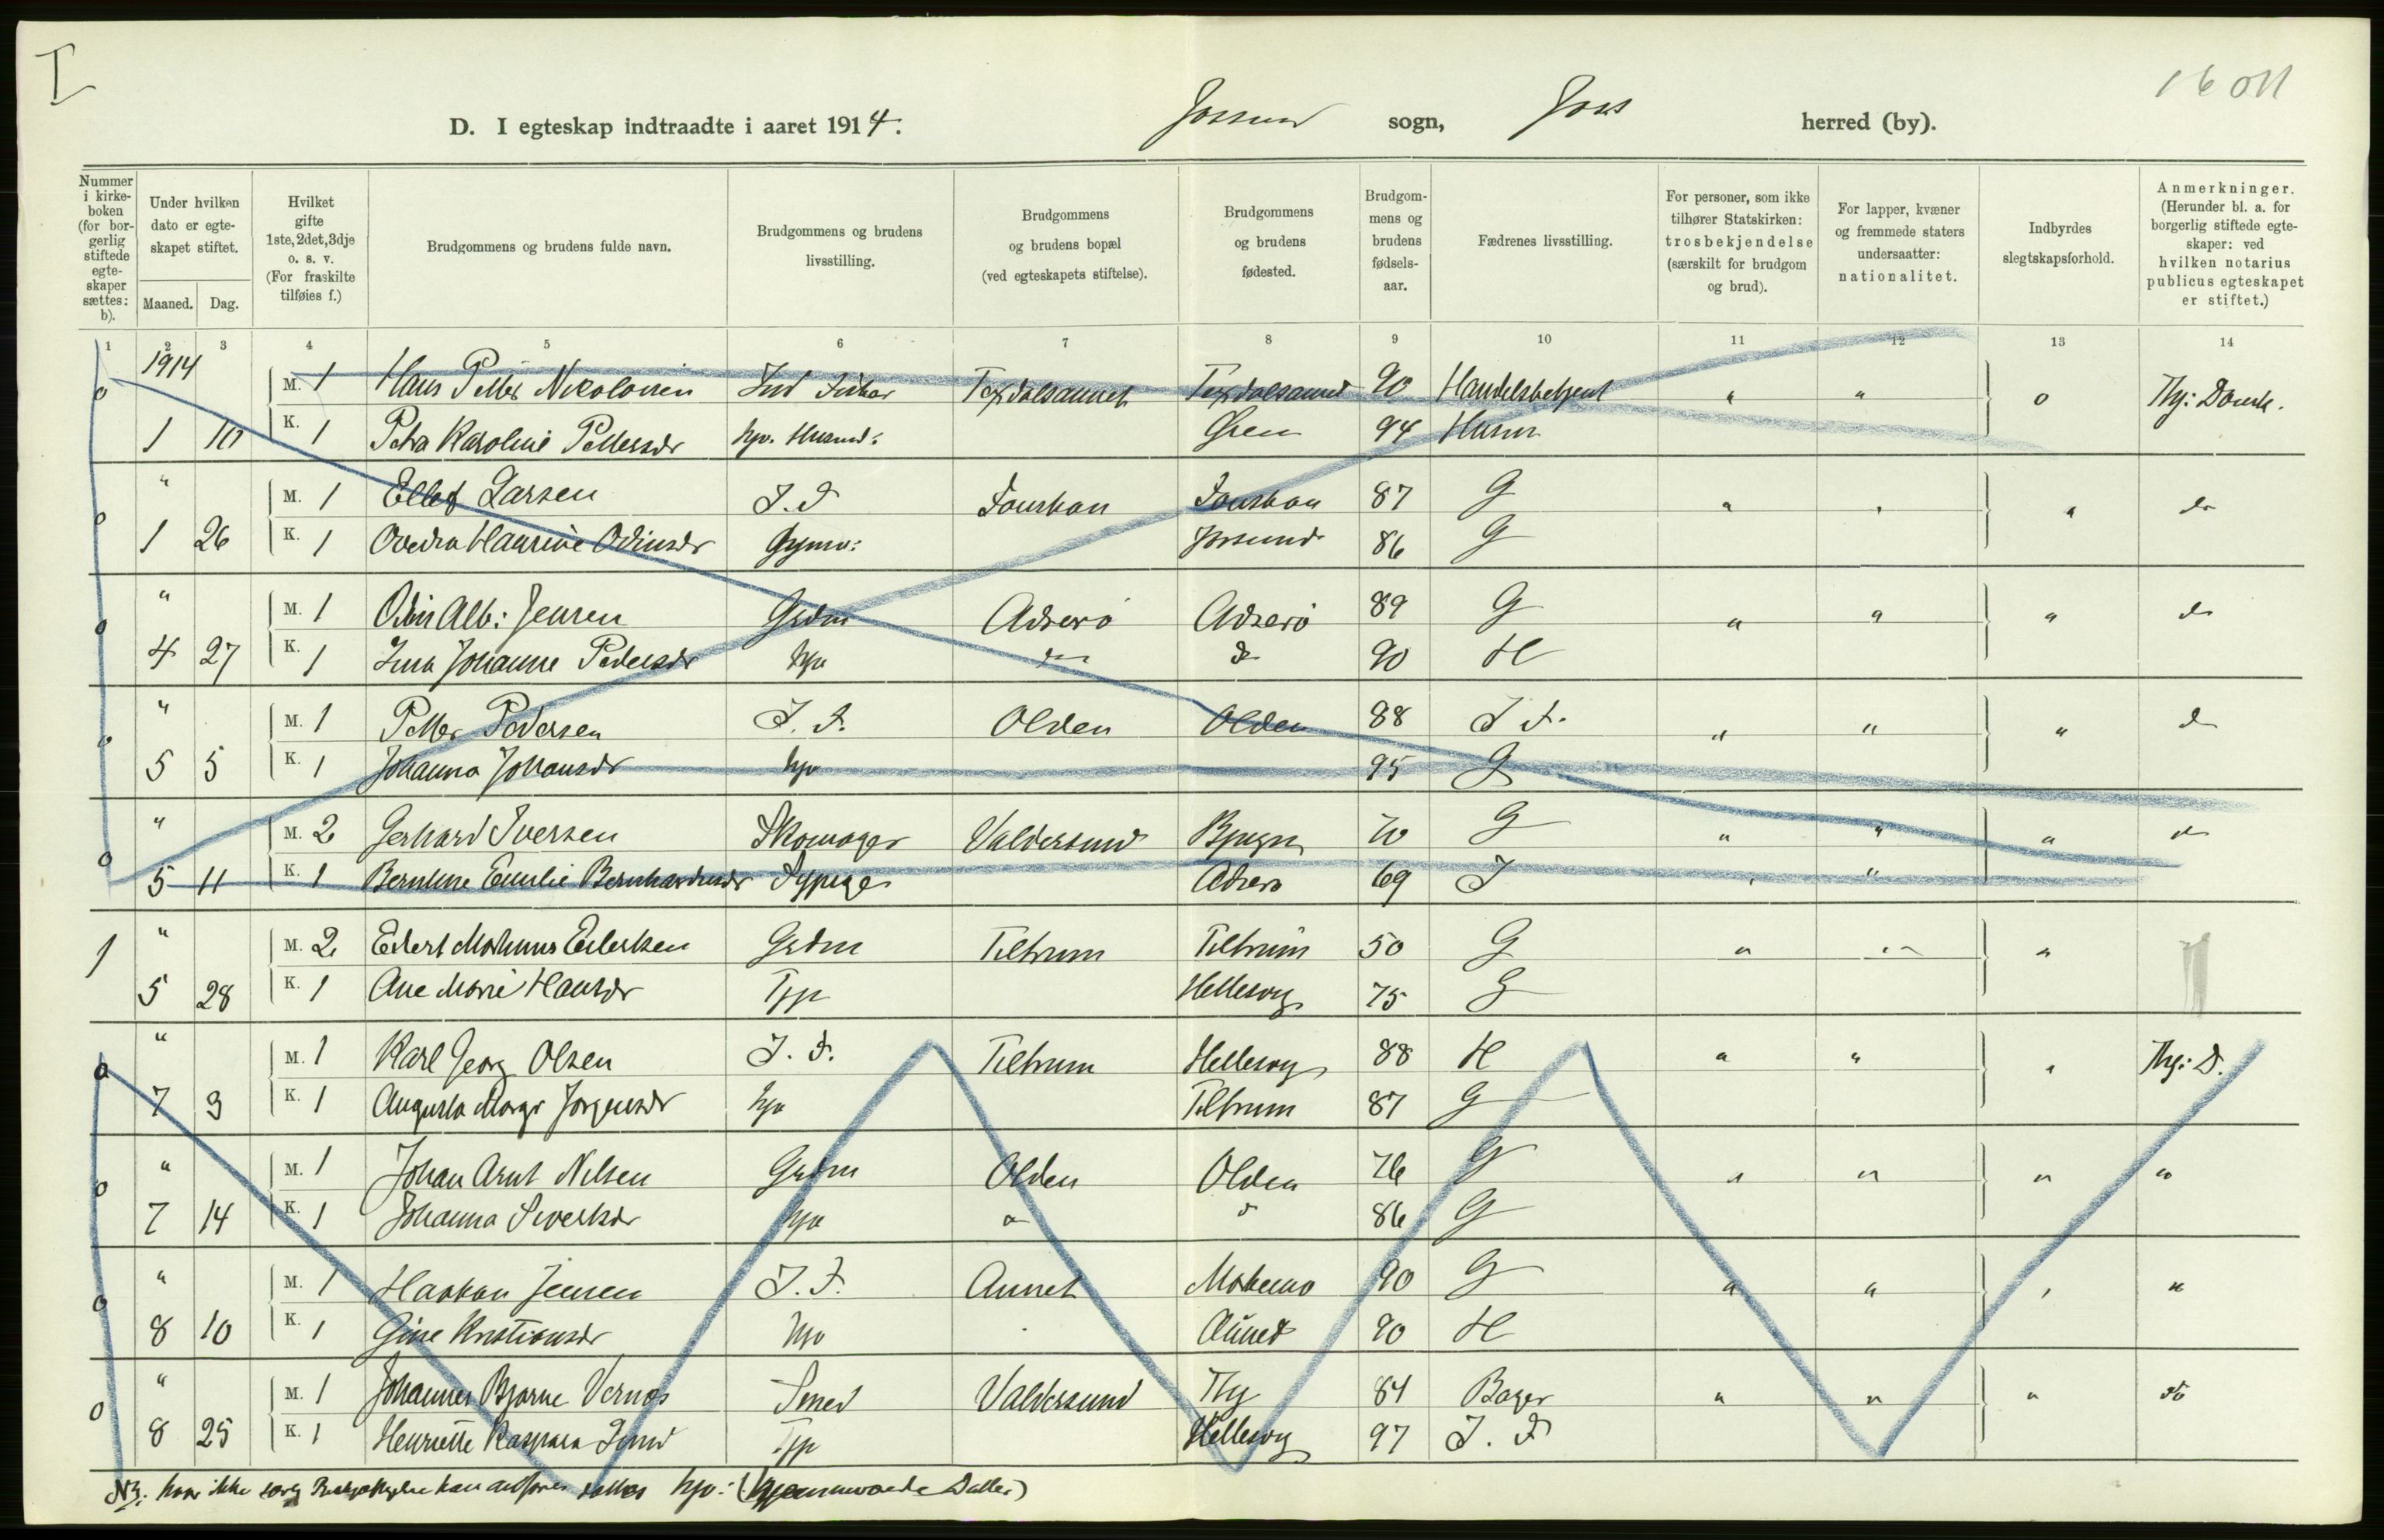 I
16 011
D. I egteskap indtraadte i aaret 1914. Jossund sogn, Joss herred (by).
Nummer i kirkeboken (for borgerlig stiftede egteskaper sættes: b).
Under hvilken dato er egteskapet stiftet.
Maaned. Dag.
Hvilket gifte 1ste, 2det, 3dje o. s. v. (For fraskilte tilføies f.)
Brudgommens og brudens fulde navn.
Brudgommens og brudens livsstilling.
Brudgommens og brudens bopæl (ved egteskapets stiftelse).
Brudgommens og brudens fødested.
Brudgommens og brudens fødselsaar.
Fædrenes livsstilling.
For personer, som ikke tilhører Statskirken: trosbekjendelse (særskilt for brudgom og brud).
For lapper, kvæner og fremmede staters undersaatter: nationalitet.
Indbyrdes slegtskapsforhold.
Anmerkninger. (Herunder bl. a. for borgerlig stiftede egteskaper: ved hvilken notarius publicus egteskapet er stiftet.)
1 2 3 4 5 6 7 8 9 10 11 12 13 14
0 1914 M. 1 Hans Petter Nikolaisen Ind Fisker 90 Handelsbetjent " " 0
1 10 K. 1 Petra Karoline Pettersdr hjv. 94 Husm
0 " M. 1 Ellef Larsen I. F 87 G " " " do
1 26 K. 1 Odinsdr Jossund 86 G
0 " M. 1 Odin Alb: Jensen Grdm Adserø Adserø 89 G " " " do
4 27 K. 1 Johanne Pedersdr hjv do do 90 H
0 " M. 1 Petter Pedersen I. F. Olden Olden 88 I F. " " " do
5 5 K. 1 Johanna Johansdr hjv 95 G
0 " M. 2 Gerhard Iversen Skomager Valdersund Bjugn 70 G " " " do
5 11 K. 1 Emilie Bernhardsdr Sypige Adserø 69 I " "
1 " M. 2 Edvert Eilertsen Grdm Teltrum Teltrum 50 G " " "
5 28 K. 1 Ane Marie Hansdr Tjp Hellesvig 75 G
0 " M. 1 Karl Georg Olsen I. F. Teltrum Hellesvig 88 H " " " Thj: D.
7 3 K. 1 Augusta Margr Jørgensdr hjv Teltrum 87 G
0 " M. 1 Johan Arnt Nilsen Grdm Olden Olden 76 G " " " "
7 14 K. 1 Johanna Sivertsdr hjv do do 86 G
0 " M. 1 Haakon Jensen I. F. Aunet 90 G " " " "
8 10 K. 1 Gine Kristiansdr hjv Auned 90 H
0 " M. 1 Johannes Bjarne Vernøs Smed Valdersund Thj 84 Bager " " " do
8 25 K. 1 Henriette Kaspara Lund Tjp Hellesvig 97 I. F
NB: hvor ikke sættes hjv: (hjemmeværende Datter)